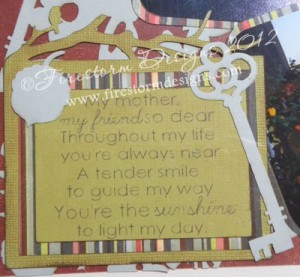 © Firestorm Designs 2012
www.firestormdesigns.com
My mother,
my friend so dear
Throughout my life
you're always near
A tender smile
to guide my way
You're the sunshine
to light my day.